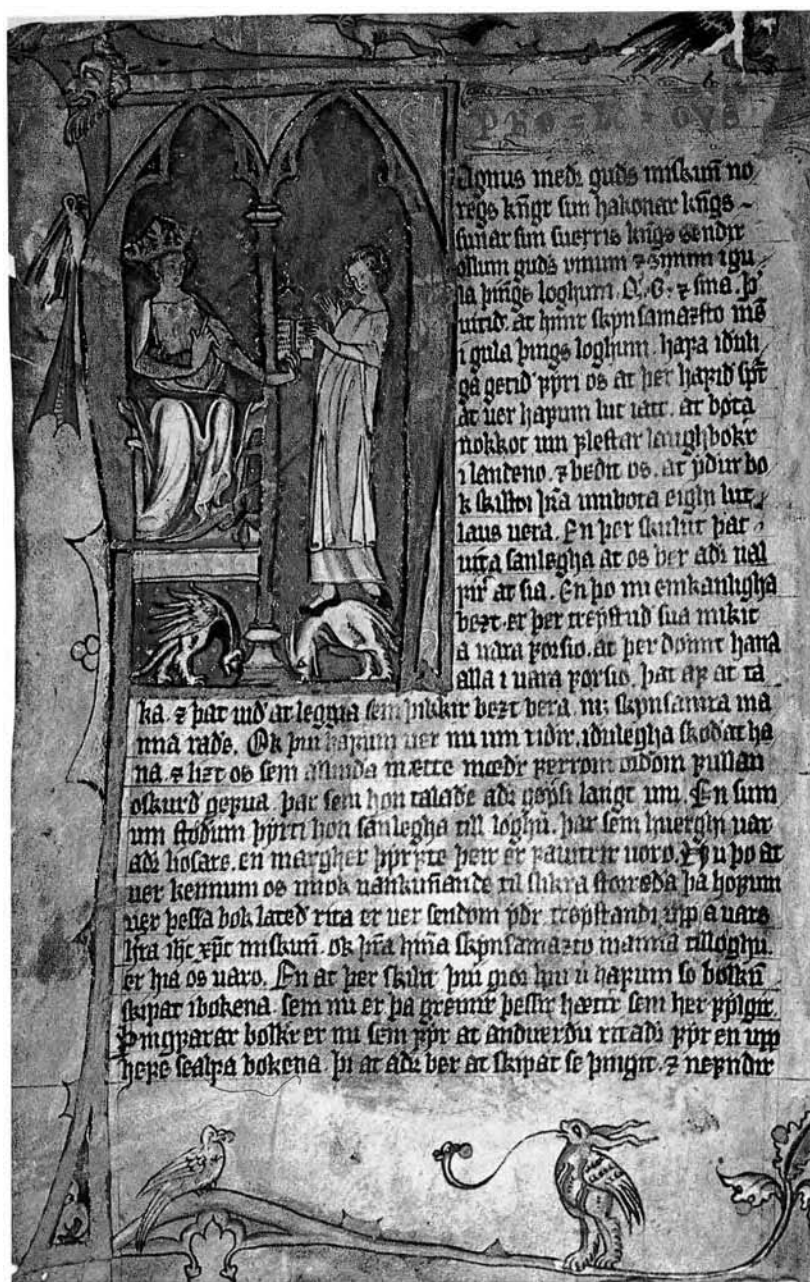 PRO-L-OVS
agnus medꝛ guds miskun̄ no
regs kn̄gr sun hakonar kn̄gs
sunar sun suerris kn̄gs sendir
ollum guds uinum ⁊ sinum i gu
la þings loghum. Q. G. ⁊ sina. þ'
uitid. at hinir skynsamazsto mē
i gula þings loghum. hafa iduli
ga getid fyri os at þer hafid spt
at uer hafum lut i att. at bøta
nokkot um flestar laughbokr
i landeno. ⁊ bedit os. at ydur bo
k skilldi hr̄a umbota eighi lut
laus uera. En þer skulut þat
uita sanlegha at os ber adꝛ ual
fir' at sia. En þo nu einkanligha
bezt er þer treystud sua mikit
a uara forsio. at þer domit hana
alla i uara forsio. þat af at ta
ka. ⁊ þat uid at leggia sem þikkir bezt bera. m; skynsamra ma
nna rade. Ok þui hafum uer nu um ridir. idulegha skodat ha
na. ⁊ lizt os sem mætte mœdr ferrom oidom fullan
oskurd gefua. þar sem hon talade adꝛ løysi langt um. En sum
um stodum þyrti hon sanlegha till loghu. þar sem huerghi uar
adꝛ liosare. en margher þyrfte þeir er fauitrir uoro. þo at
uer kennum os miok uankunnande til slikra storræda þa hofum
uer þessa bok lated rita er uer sendom ydr treystandi upp a uars
hr̄a ihc xp̄c miskun̄. ok hr̄a hinna skynsamazto manna tilloghu
er hia os uaro. En at þer skilit þui giør hui ū hafum so bolkū
skipat i bokena. sem nu er þa greinir þessir hættir sem her fylgir.
þingfarar bolkr er nu sem fyr at anduerdu ritadꝛ fyr en upp
hefe sealfa bokena. þi at adꝛ ber at skipat se þingit. ⁊ nefndir